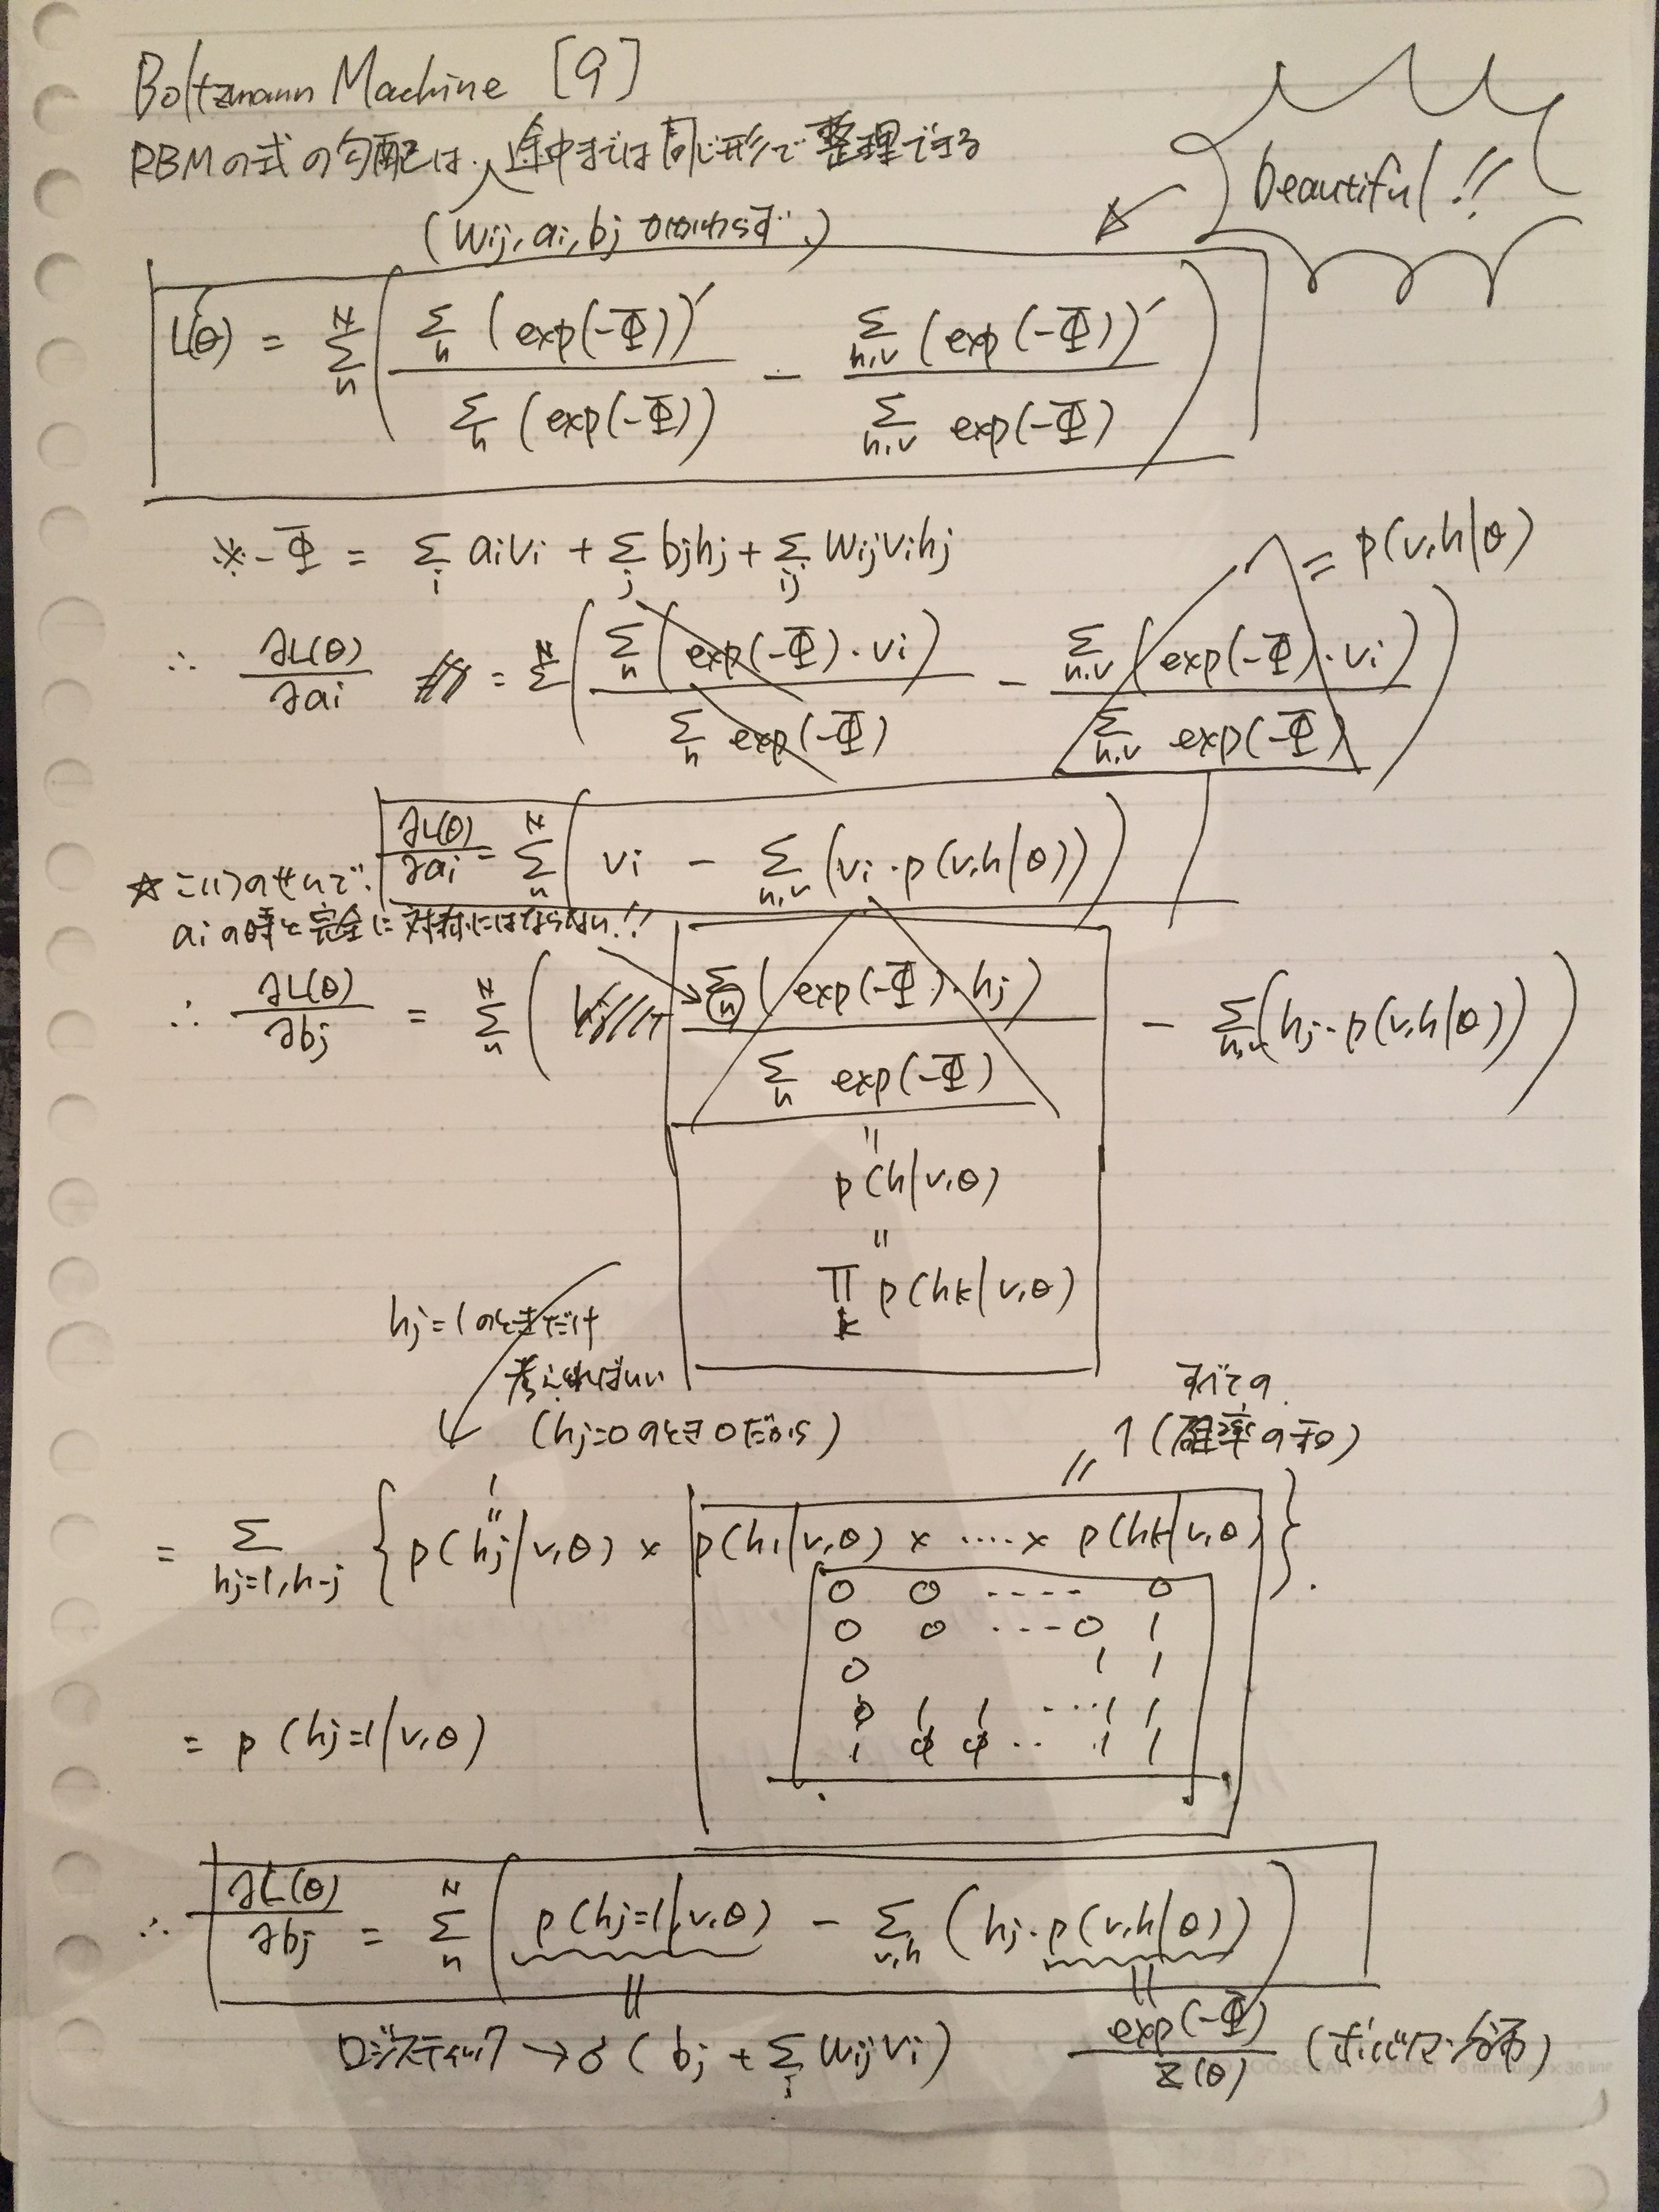 Boltzmann Machine [9]
RBMの式の勾配は、途中までは同じ形で整理できる
(wij, ai, bj かかわらず、)
beautiful!!
L(θ)' = Σ_n^N ( Σ_h (exp(-Φ))' / Σ_h (exp(-Φ)) - Σ_h,v (exp(-Φ))' / Σ_h,v exp(-Φ) )
※ -Φ = Σ_i aivi + Σ_j bjhj + Σ_ij wijvihj
= p(v,h|θ)
∴ ∂L(θ)/∂ai = Σ^N ( Σ_h (exp(-Φ)・vi) / Σ_h exp(-Φ) - Σ_h,v (exp(-Φ)・vi) / Σ_h,v exp(-Φ) )
∂L(θ)/∂ai = Σ_n^N ( vi - Σ_h,v (vi・p(v,h|θ)) )
☆こいつのせいで、
aiの時と完全に対称にはならない!!
∴ ∂L(θ)/∂bj = Σ_n^N ( Σ_h (exp(-Φ)・hj) / Σ_h exp(-Φ) - Σ_h,v (hj・p(v,h|θ)) )
=
p(h|v,θ)
=
Π_k p(hk|v,θ)
hj=1のときだけ
考えればいい
(hj=0のとき0だから)
すべての
1(確率の和)
=
1
=
= Σ_hj=1,h-j { p(hj|v,θ) × p(h1|v,θ) × ‥‥ × p(hk|v,θ) }.
0 0 ---- 0
0 0 ---0 1
0 1 1
0 1 1 --- 1 1
1 0 0 ‥ 1 1
= p(hj=1|v,θ)
∴ ∂L(θ)/∂bj = Σ_n^N ( p(hj=1|v,θ) - Σ_v,h (hj・p(v,h|θ)) )
= =
ロジスティック→σ( bj + Σ_i wijvi ) exp(-Φ)/Z(θ) (ボルツマン分布)